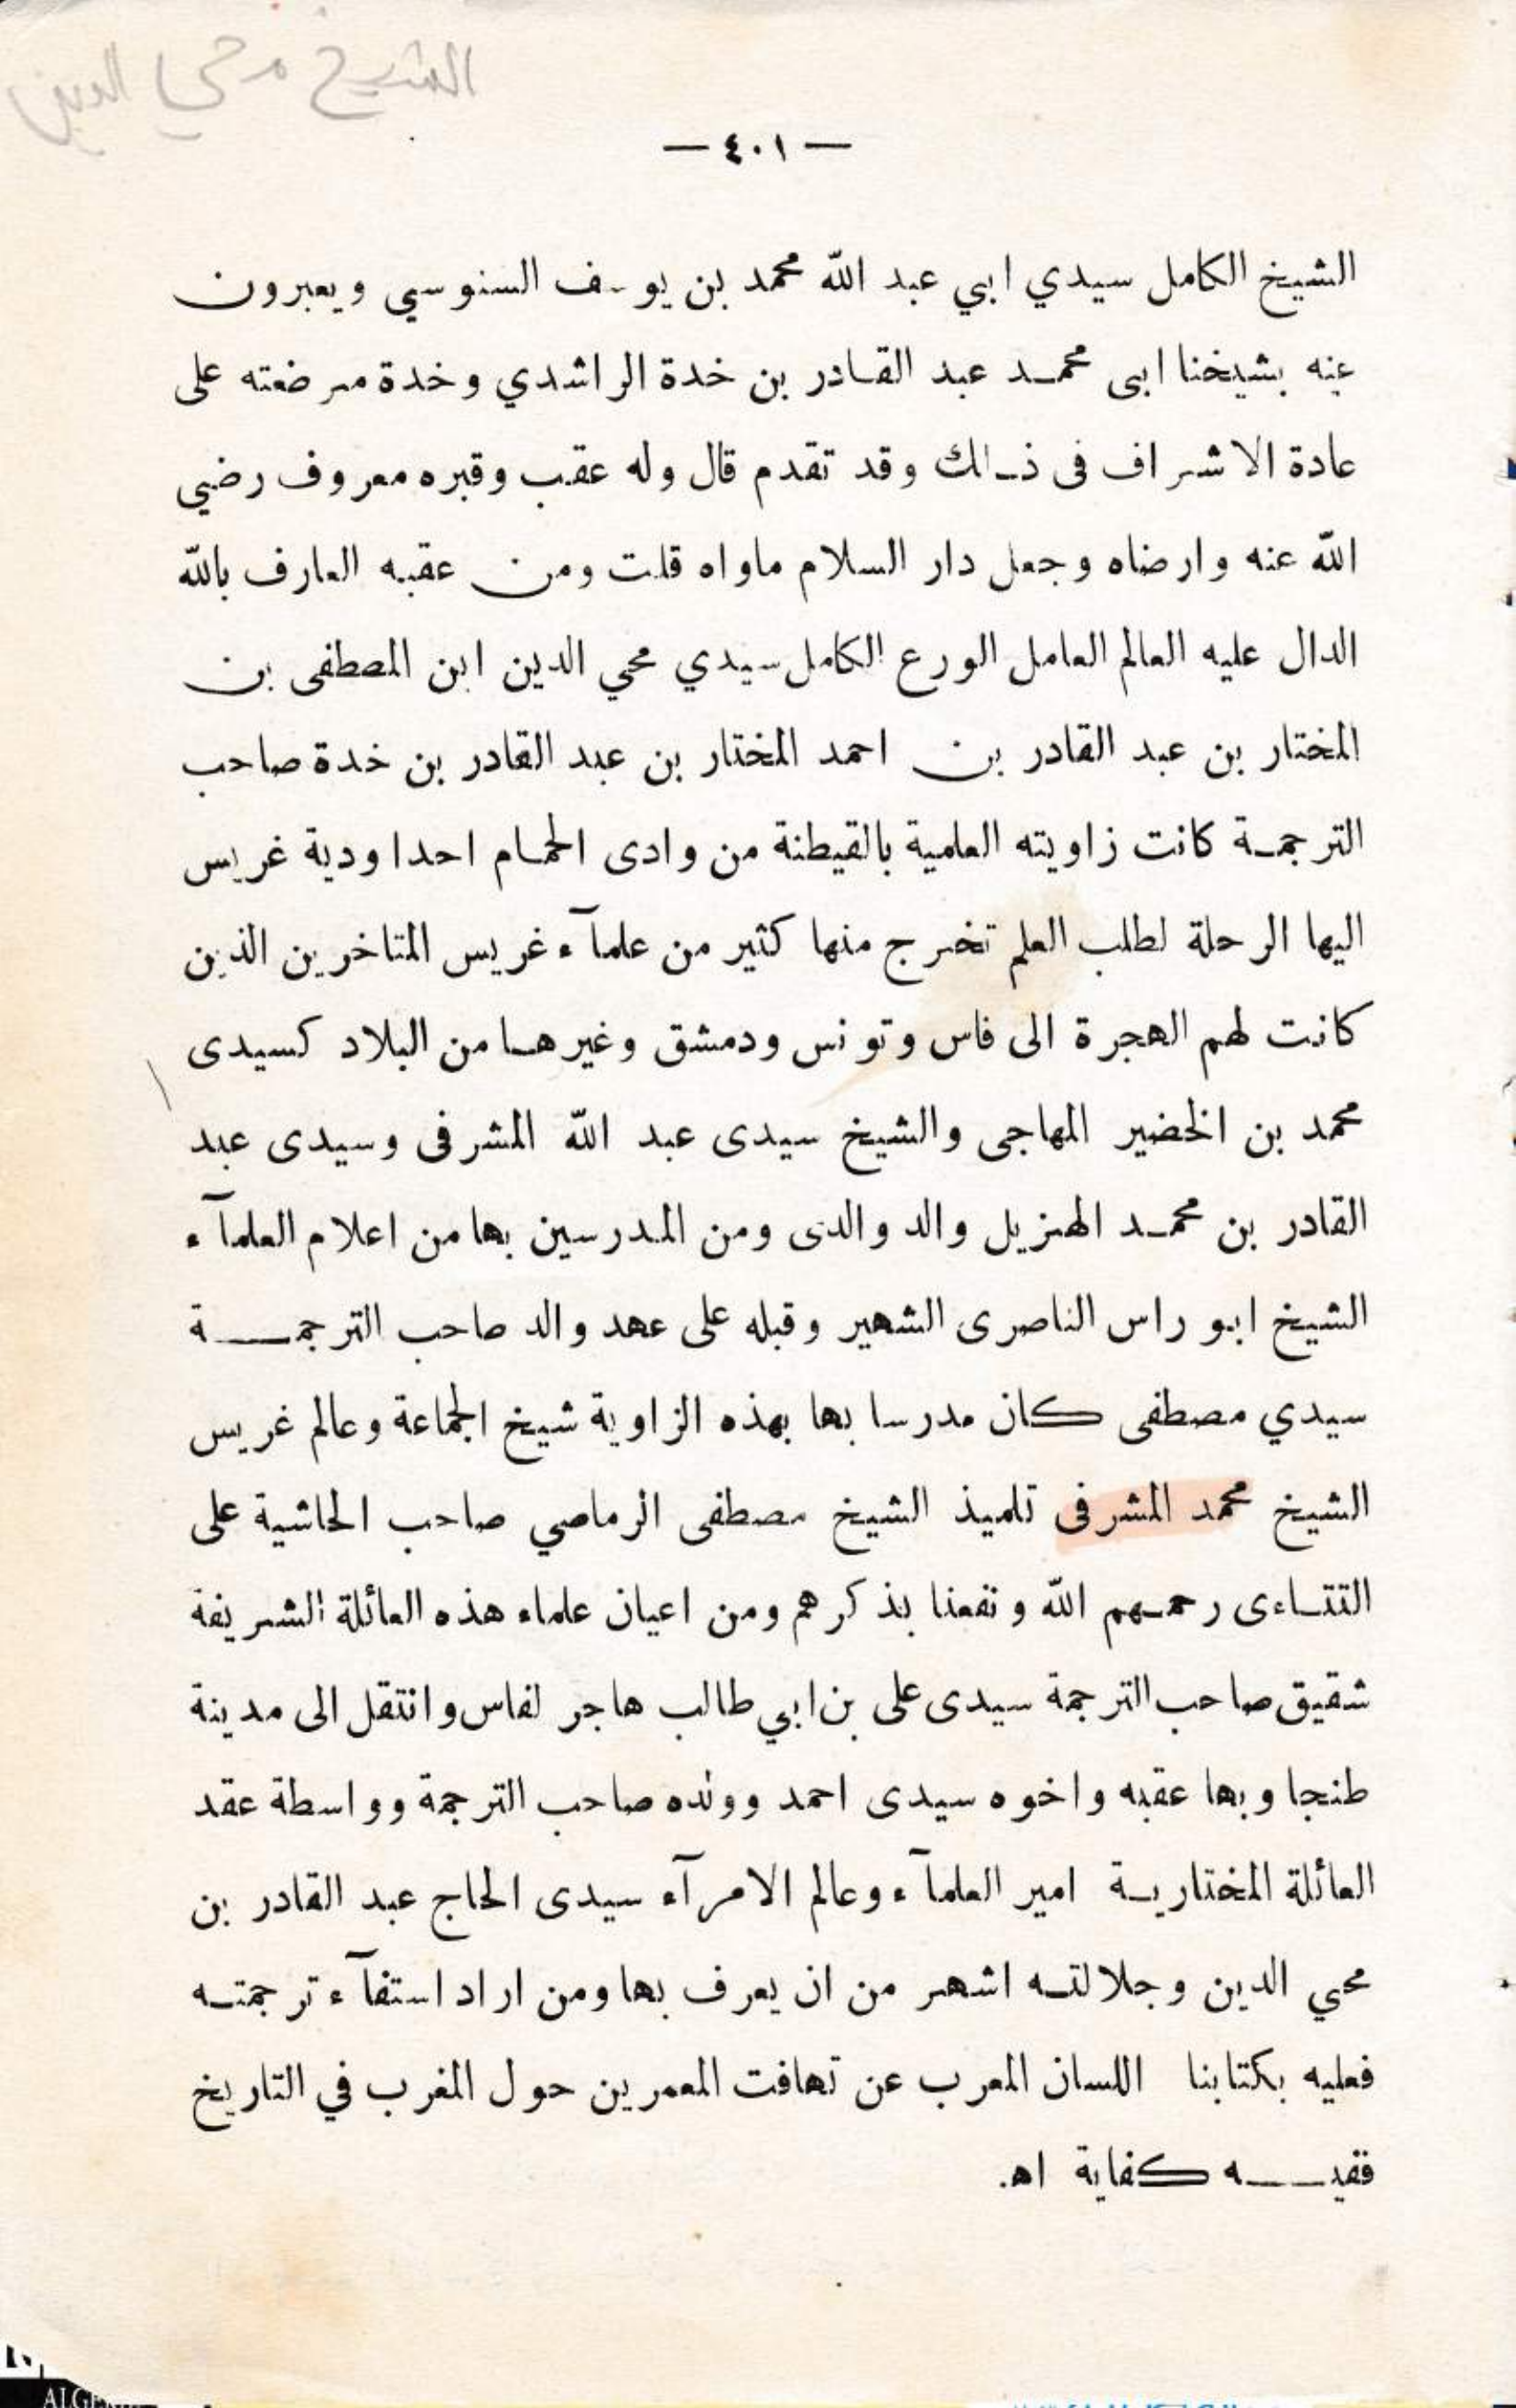 الشيخ محي الدين
— ٤٠١ —
الشيخ الكامل سيدي ابي عبد الله محمد بن يوسف السنوسي ويعبرون
عنه بشيخنا ابى محمد عبد القادر بن خدة الراشدي وخدة مرضعته على
عادة الاشراف فى ذالك وقد تقدم قال وله عقب وقبره معروف رضي
الله عنه وارضاه وجعل دار السلام ماواه قلت ومن عقبه العارف بالله
الدال عليه العالم العامل الورع الكامل سيدي محي الدين ابن المصطفى بن
المختار بن عبد القادر بن احمد المختار بن عبد القادر بن خدة صاحب
الترجمة كانت زاويته العلمية بالقيطنة من وادى الحمام احد اودية غريس
اليها الرحلة لطلب العلم تخرج منها كثير من علمآء غريس المتاخرين الذين
كانت لهم الهجرة الى فاس وتونس ودمشق وغيرها من البلاد كسيدى
محمد بن الخضير المهاجى والشيخ سيدى عبد الله المشرفى وسيدى عبد
القادر بن محمد الهنزيل والد والدى ومن المدرسين بها من اعلام العلمآء
الشيخ ابو راس الناصرى الشهير وقبله على عهد والد صاحب الترجمة
سيدي مصطفى كان مدرسا بها بهذه الزاوية شيخ الجماعة وعالم غريس
الشيخ محمد المشرفى تلميذ الشيخ مصطفى الرماصي صاحب الحاشية على
التتاءى رحمهم الله ونفعنا بذكرهم ومن اعيان علماء هذه العائلة الشريفة
شقيق صاحب الترجمة سيدى على بن ابي طالب هاجر لفاس وانتقل الى مدينة
طنجا وبها عقبه واخوه سيدى احمد وولده صاحب الترجمة وواسطة عقد
العائلة المختارية امير العلمآء وعالم الامرآء سيدى الحاج عبد القادر بن
محي الدين وجلالته اشهر من ان يعرف بها ومن اراد استفآء ترجمته
فعليه بكتابنا اللسان المعرب عن تهافت المعمرين حول المغرب في التاريخ
ففيه كفاية اه.